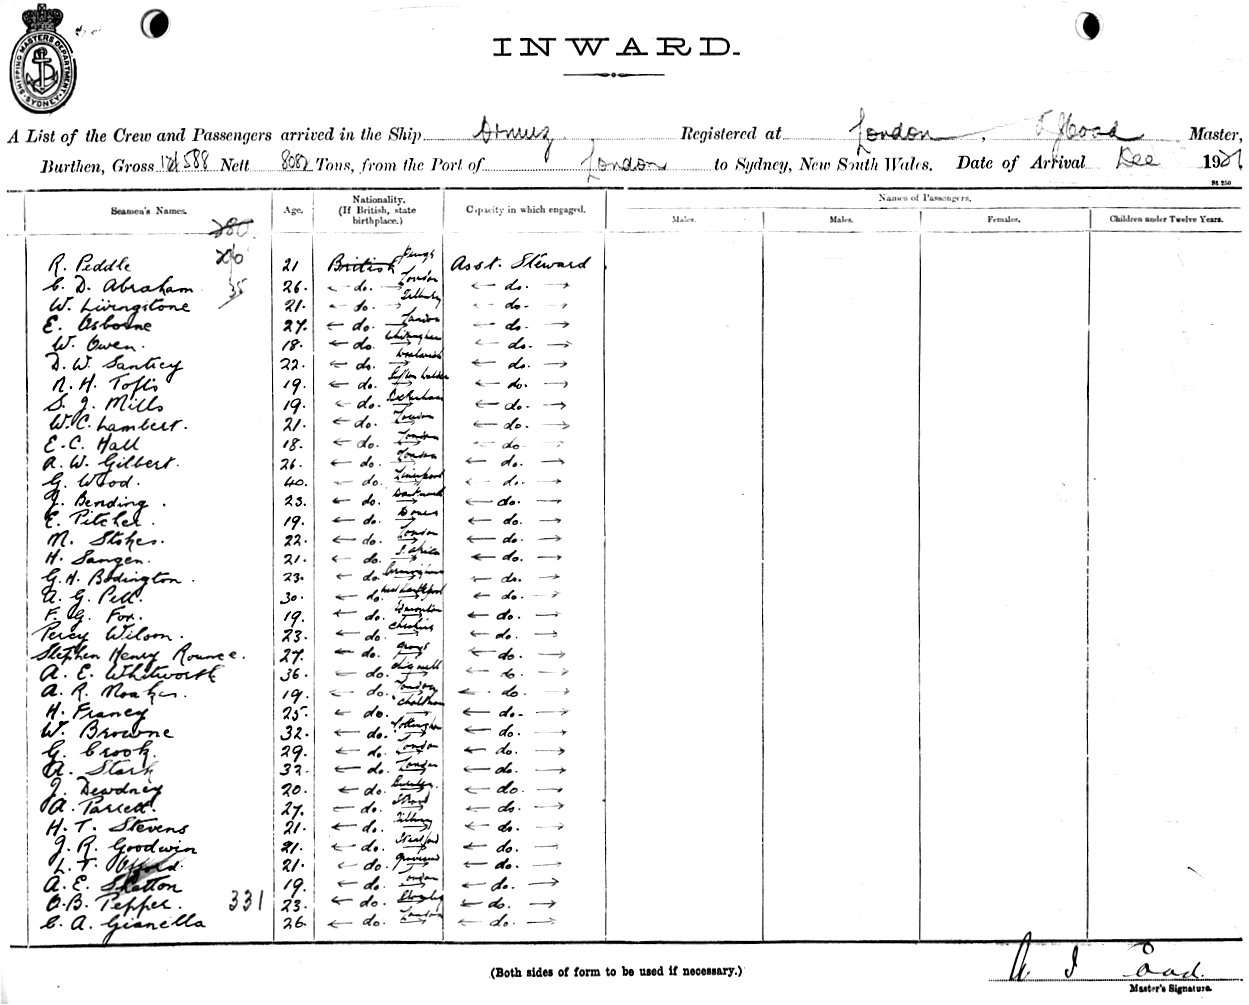 SHIPPING MASTERS DEPARTMENT SYDNEY
INWARD.
A List of the Crew and Passengers arrived in the Ship Ormuz Registered at London, Master,
Burthen, Gross 588 Nett Tons, from the Port of London to Sydney, New South Wales. Date of Arrival Dec 192
St 250
Seamen's Names. Age. Nationality. (If British, state birthplace.) Capacity in which engaged. Names of Passengers.
Males. Males. Females. Children under Twelve Years.
280
R. Peddle 21 British Asst. Steward
C. D. Abraham 35 26. ← do. → London ← do. →
W. Livingstone 21. ← do. → Tilbury ← do. →
E. Osborne 27. ← do. → London ← do. →
W. Owen. 18. ← do. → ← do. →
D. W. Santry 22. ← do. → Woolwich ← do. →
N. H. Tofts 19. ← do. → ← do. →
S. J. Mills 19. ← do. → ← do. →
W. C. Lambert. 21. ← do. → London ← do. →
E. C. Hall 18. ← do. → London ← do →
A. W. Gilbert. 26. ← do. → London ← do. →
G. Wood. 40. ← do. → Liverpool ← do. →
J. Bending. 23. ← do. → ← do. →
E. Pitcher. 19. ← do. → ← do. →
M. Stokes. 22. ← do. → London ← do. →
H. Samgen. 21. ← do. → S. Africa ← do. →
G. H. Bodington. 23. ← do. → Birmingham ← do. →
A. G. Pell. 30. ← do → West Hartlepool ← do. →
F. G. Fox. 19. ← do. → Edmonton ← do. →
Percy Wilson. 23. ← do. → Cheshire ← do. →
Stephen Henry Rounce. 27. ← do. → Grays ← do. →
A. E. Whitworth 36. ← do. → Chigwell ← do. →
A. R. Noakes. 19. ← do. → London ← do. →
H. Francy 25. ← do. → Chatham ← do. →
W. Browne 32. ← do. → Tottenham ← do. →
G. Crook. 29. ← do. → London ← do. →
A. Stark 32. ← do. → London ← do. →
J. Dewdney 20. ← do. → ← do. →
A. Parrett. 27. ← do. → ← do. →
H. T. Stevens 21. ← do. → Tilbury ← do. →
J. R. Goodwin 21. ← do. → Stratford ← do. →
L. T. Offord. 21. ← do. → Gravesend ← do. →
A. E. Skelton 19. ← do. → London ← do. →
O. B. Pepper. 331 23. ← do. → ← do. →
C. A. Gianella 26. ← do. → London ← do. →
(Both sides of form to be used if necessary.)
Master's Signature.